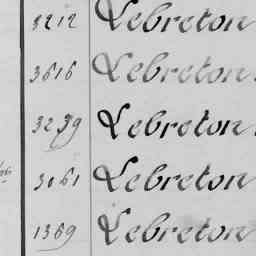 3212 Lebreton
3616 Lebreton
3239 Lebreton
3061 Lebreton
1369 Lebreton